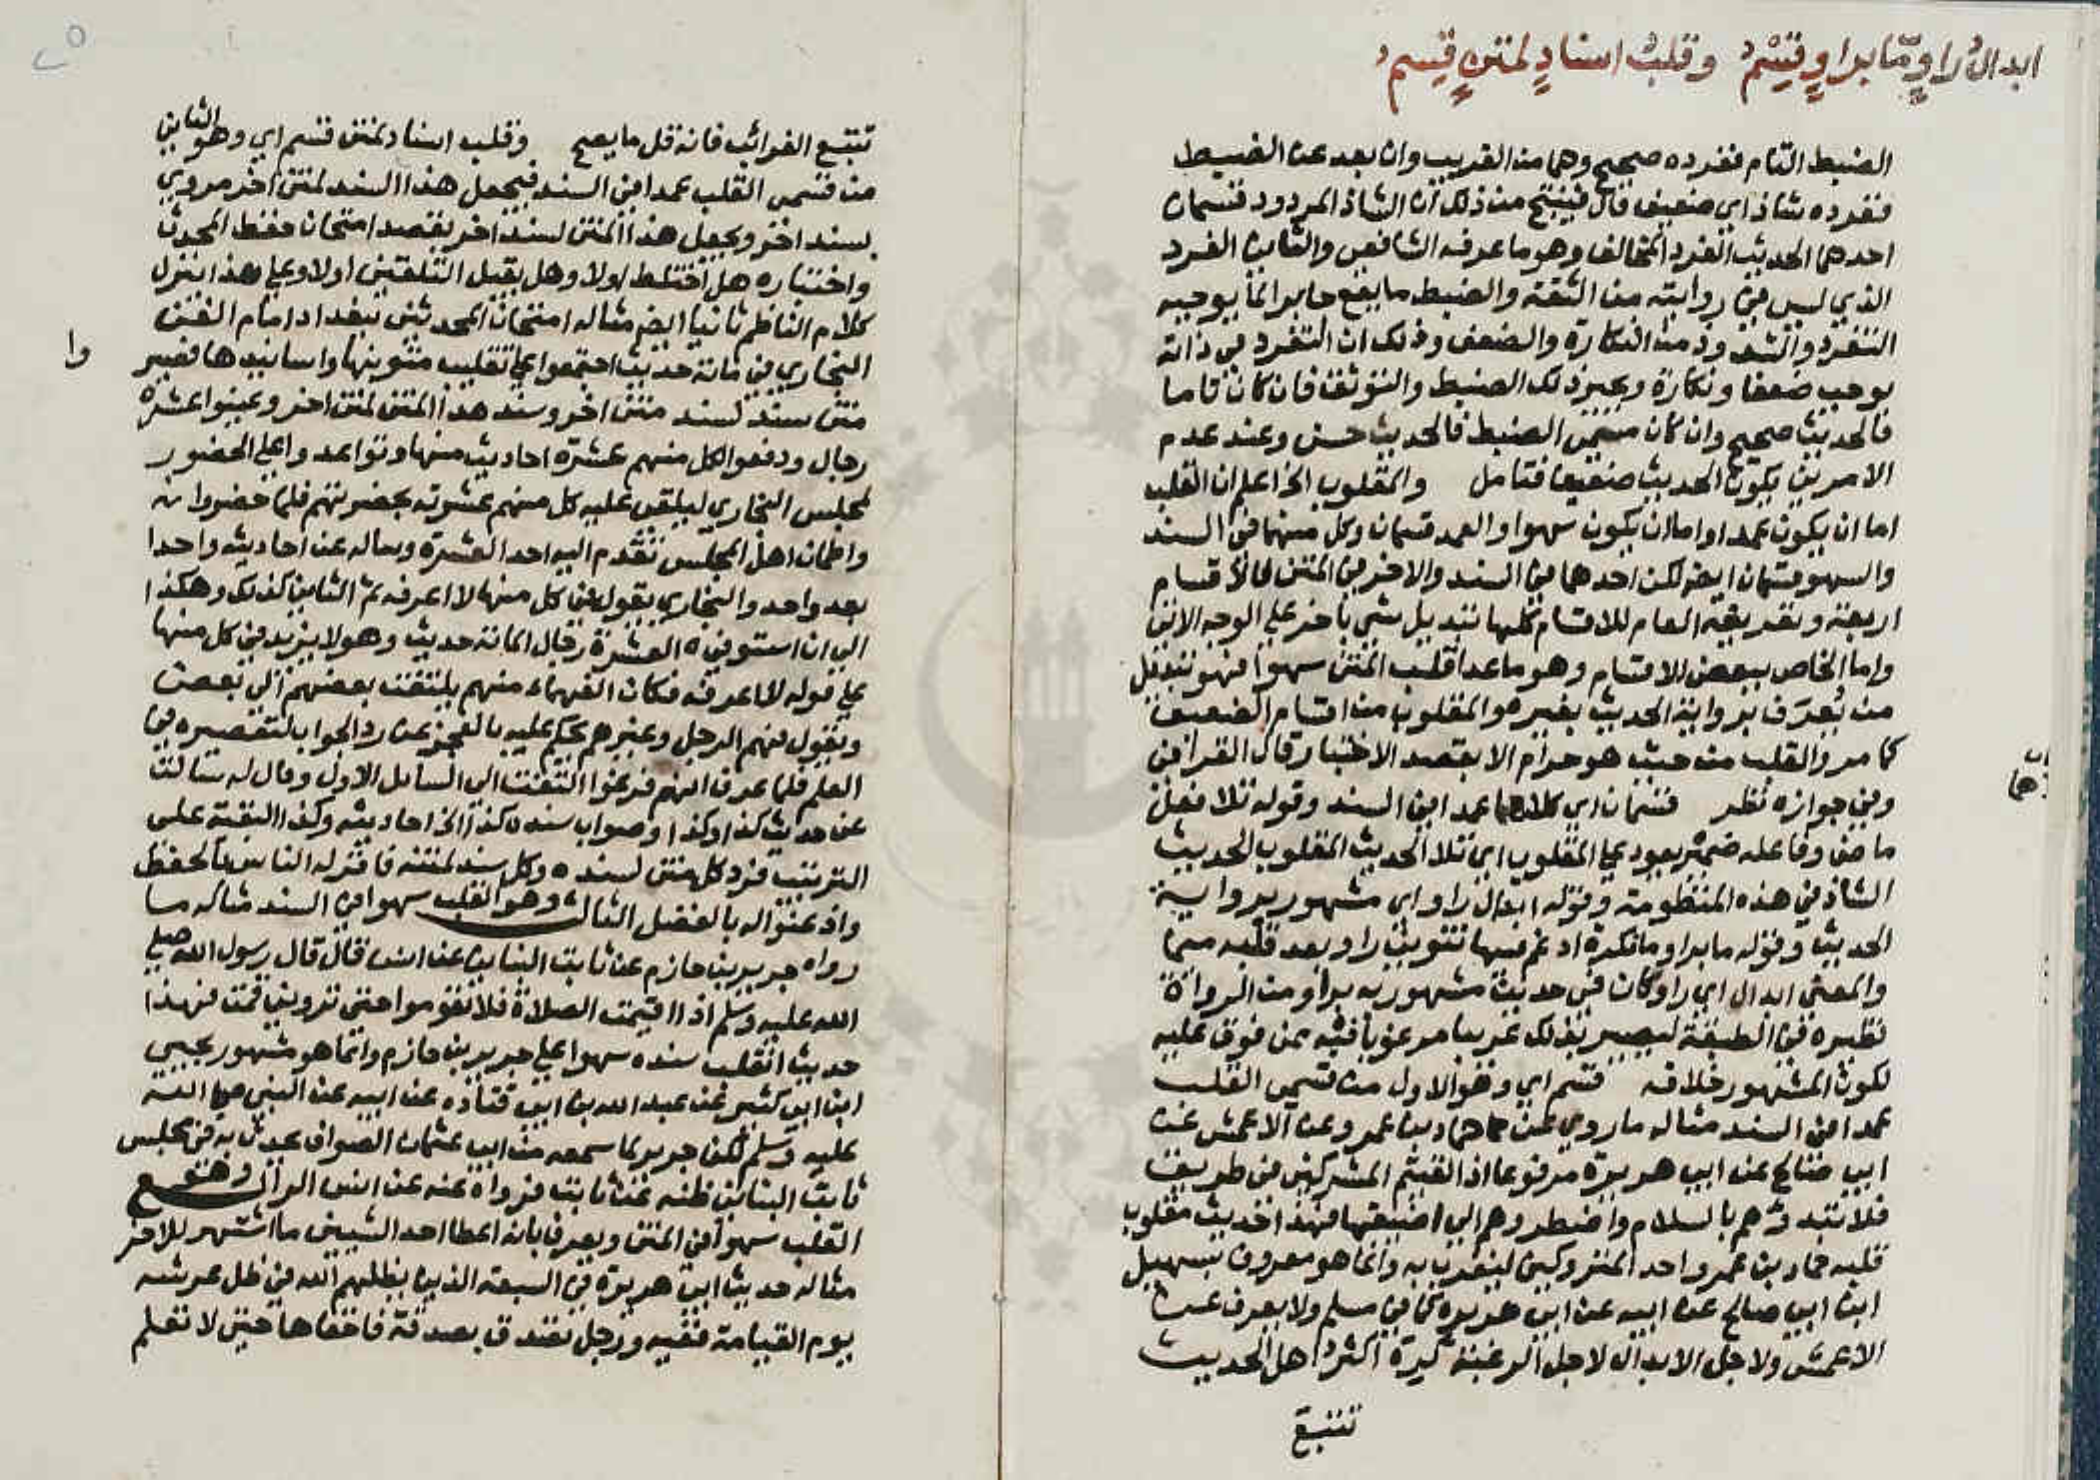 ابدالُ راوٍ مّا براوٍ قِسْمُ وقلبُ اسنادٍ لمتنٍ قِسمُ
الضبط التام ففرده صحيح وهما من القريب وان بعد عن الضبط
ففرده شاذ اي ضعيف قال فينتج من ذلك ان الشاذ المردود قسمان
احدهما الحديث الفرد المخالف وهو ما عرفه الشافعي والثاني الفرد
الذي ليس في روايته من الثقة والضبط ما يقع جابرا لما يوجبه
التفرد والشذوذ من النكارة والضعف وذلك ان التفرد في ذاته
يوجب ضعفا ونكارة ويجبر ذلك الضبط والتوثق فان كان تاما
فالحديث صحيح وان كان مسمى الضبط فالحديث حسن وعند عدم
الامرين يكون الحديث ضعيفا فتامل والمقلوب الخ اعلم ان القلب
اما ان يكون عمدا واما ان يكون سهوا والعمد قسمان وكل منهما في السند
والسهو قسمان ايضا لكن احدهما في السند والاخر في المتن فالاقسام
اربعة وتعريفه العام للاقسام كلها تبديل شي باخر على الوجه الاتي
واما الخاص ببعض الاقسام وهو ما عدا قلب المتن سهوا فهو تبديل
من يُعرَف برواية الحديث بغيره والمقلوب من اقسام الضعيف
كما مر والقلب من حيث هو حرام الا بقصد الاختبار قال العراقي
وفي جوازه نظر قسمان اي كلاهما عمدا في السند وقوله تلا فعل
ماض وفاعله ضمير يعود على المقلوب اي تلا الحديث المقلوب الحديث
الشاذ في هذه المنظومة وقوله ابدال راو اي مشهور برواية
الحديث وقوله ما براو ما نكرة ادغم فيها تنوين راو بعد قلبه ميما
والمعنى ابدال اي راو كان في حديث مشهور به براو من الرواة
نظيره في الطبقة ليصير بذلك غريبا مرغوبا فيه ممن وقف عليه
لكون المشهور خلافه قسم اي وهو الاول من قسمي القلب
عمدا في السند مثاله ما روي عن حماد بن عمرو عن الاعمش عن
ابي صالح عن ابي هريرة مرفوعا اذا لقيتم المشركين في طريق
فلا تبدؤهم بالسلام واضطروهم الى اضيقها فهذا حديث مقلوب
قلبه حماد بن عمرو احد المتروكين ليغرب به وانما هو معروف بسهيل
ابن ابي صالح عن ابيه عن ابي هريرة كما في مسلم ولا يعرف عن
الاعمش ولاجل الابدال لاجل الرغبة كره اكثر اهل الحديث
تتبع
هما
تتبع الغرائب فانه قل ما يصح وقلب اسناد لمتن قسم اي وهو الثاني
من قسمي القلب عمدا في السند فيجعل هذا السند لمتن اخر مروي
بسند اخر ويجعل هذا المتن لسند اخر بقصد امتحان حفظ المحدث
واختباره هل اختلط اولا وهل يقبل التلقين اولا وعلى هذا ينزل
كلام الناظم ثانيا ايضا مثاله امتحان المحدثين ببغداد امام الفن
البخاري في مائة حديث اجتمعوا على تقليب متونها واسانيدها فصير
وا
متن سند لسند متن اخر وسند هذا المتن لمتن اخر وعينوا عشرة
رجال ودفعوا لكل منهم عشرة احاديث منها وتواعدوا على الحضور
لمجلس البخاري ليلقي عليه كل منهم عشرته بحضرتهم فلما حضروا
واطمان اهل المجلس تقدم اليه احد العشرة وساله عن احاديثه واحدا
بعد واحد والبخاري يقول في كل منها لا اعرفه ثم الثاني كذلك وهكذا
الى ان استوفى العشرة رجال المائة حديث وهو لا يزيد في كل منها
على قوله لا اعرفه فكان الفهماء منهم يلتفت بعضهم الى بعض
ويقول فهم الرجل وغيرهم يحكم عليه بالعجز عن رد الجواب لتقصيره في
العلم فلما عرف انهم فرغوا التفت الى السائل الاول وقال له سالت
عن حديث كذا وكذا وصواب سنده كذا الى اخر احاديثه وكذا البقية على
الترتيب فرد كل متن لسنده وكل سند لمتنه فاقر له الناس بالحفظ
واذعنوا له بالفضل الثالث وهو القلب سهوا في السند مثاله ما
رواه جرير بن حازم عن ثابت البناني عن انس قال قال رسول الله صلى
الله عليه وسلم اذا اقيمت الصلاة فلا تقوموا حتى تروني قمت فهذا
حديث انقلب سنده سهوا على جرير بن حازم وانما هو مشهور بيحيى
ابن ابي كثير عن عبد الله بن ابي قتادة عن ابيه عن النبي صلى الله
عليه وسلم لكن جرير لما سمعه من ابي عثمان الصواف يحدث به في مجلس
ثابت البناني ظنه عن ثابت فرواه عنه عن انس الرابع وهو
القلب سهوا في المتن ويعرف بانه اعطا احد الشيئين ما اشتهر للاخر
مثاله حديث ابي هريرة في السبعة الذين يظلهم الله في ظل عرشه
يوم القيامة ففيه ورجل تصدق بصدقة فاخفاها حتى لا تعلم